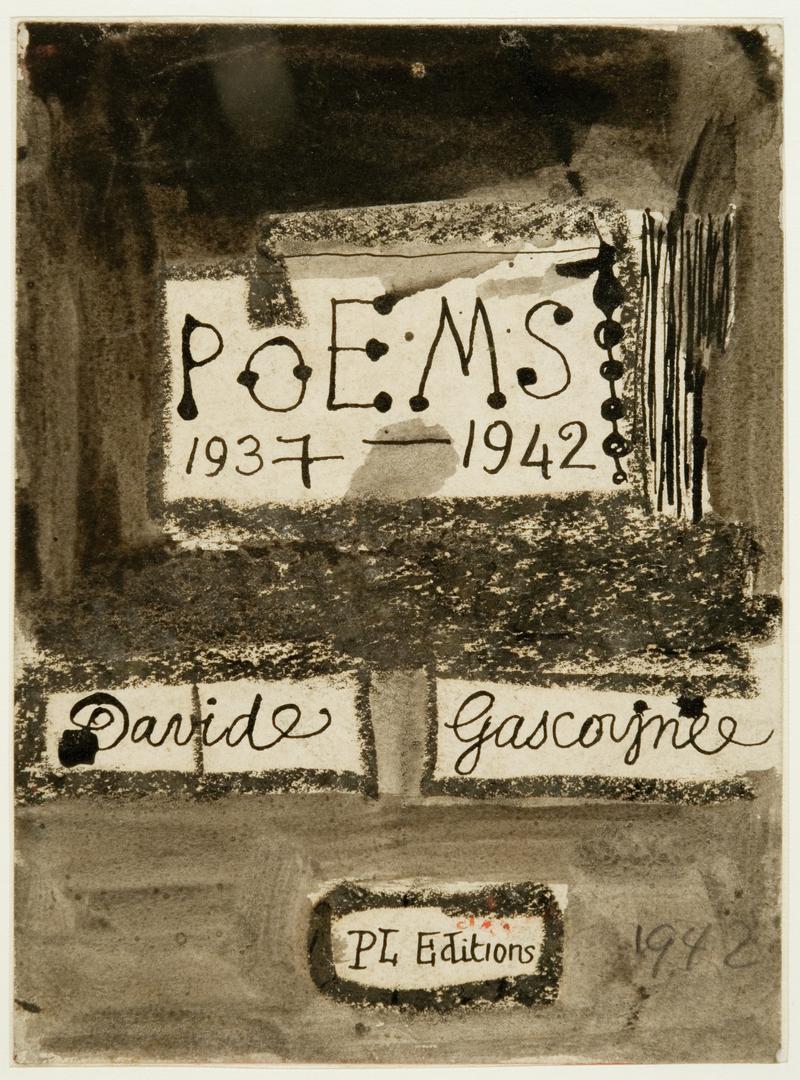 POEMS
1937 — 1942
David Gascoyne
PL Editions